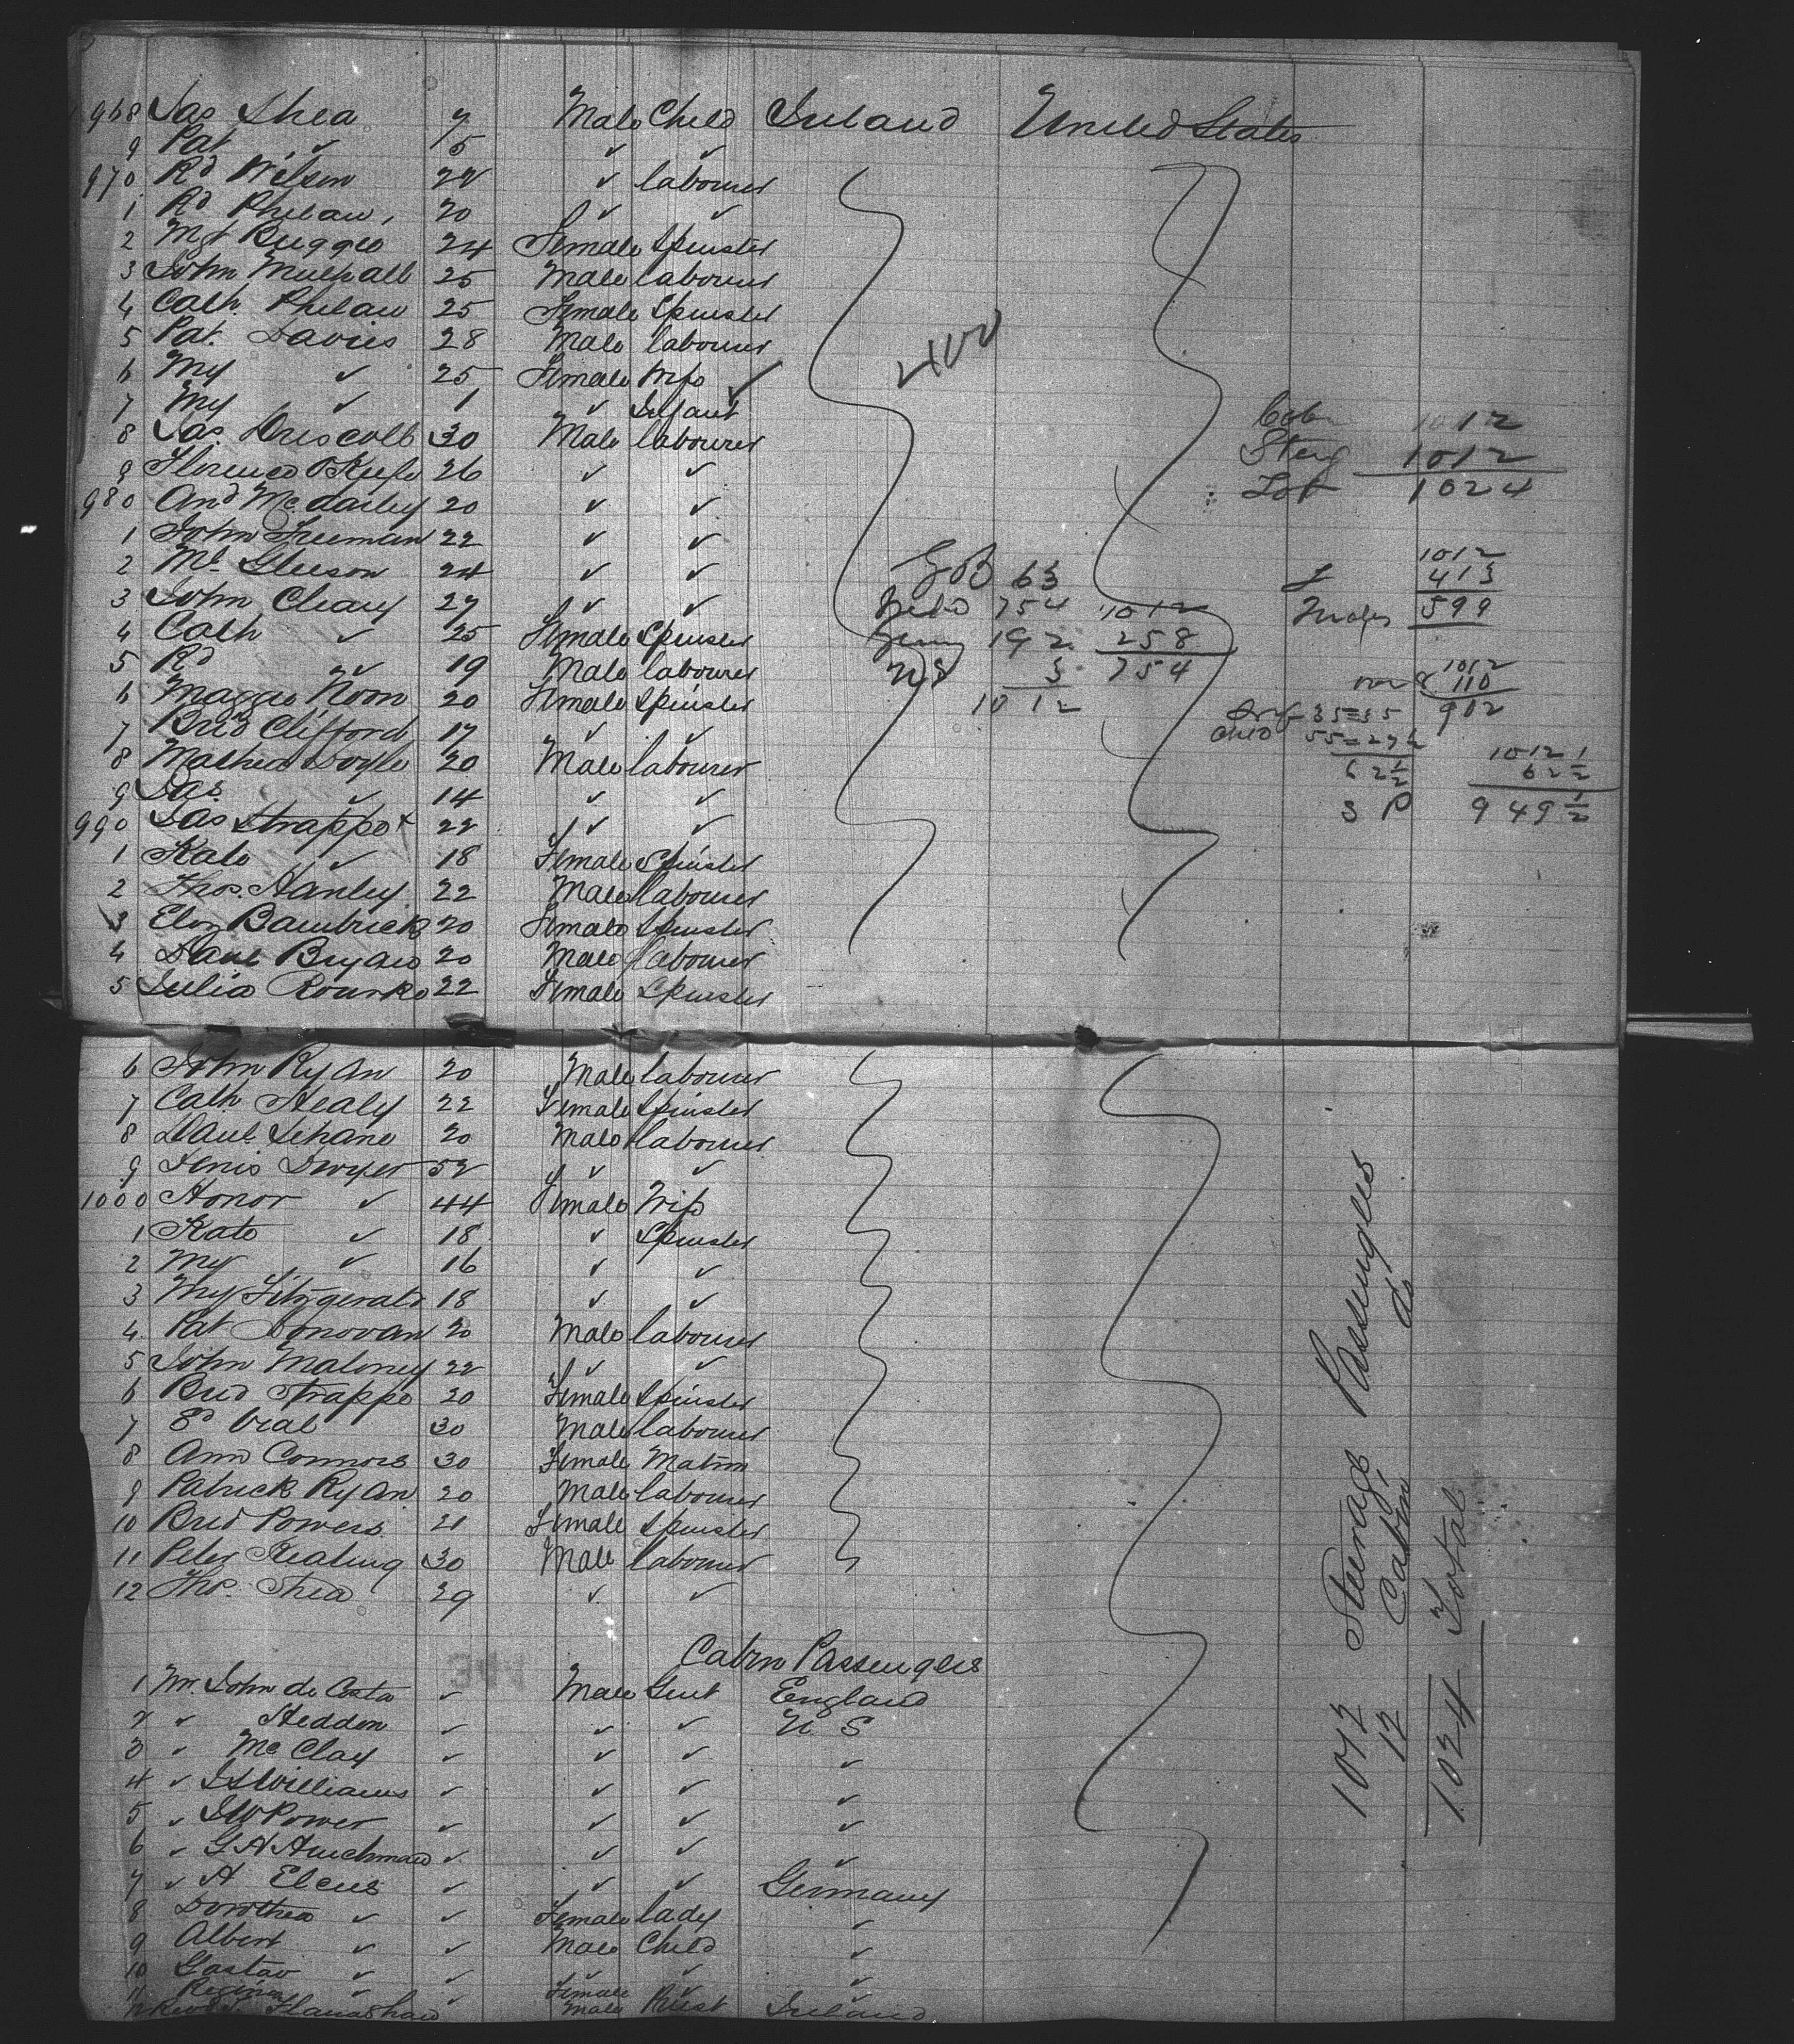 968 Jas Shea 7 Male Child Ireland United States
9 Pat ✓ 5 ✓ ✓
970 Rd Wilson 22 ✓ labourer
1 Rd Phelan 20 ✓ ✓
2 Mgt Buggie 24 Female Spinster
3 John Mulhall 25 Male labourer
4 Cath. Phelan 25 Female Spinster
5 Pat. Davies 28 Male labourer
6 My ✓ 25 Female Wife
7 My ✓ 1 ✓ Infant
8 Jas. Driscoll 30 Male labourer
9 Florence OKeefe 26 ✓ ✓
980 And 20 ✓ ✓
1 John Freeman 22 ✓ ✓
2 Ml Gleeson 24 ✓ ✓
3 John Cleary 27 ✓ ✓
4 Cath ✓ 25 Female Spinster
5 Rd ✓ 19 Male labourer
6 Maggie Noon 20 Female Spinster
7 Brid Clifford 17 ✓ ✓
8 Mathew Doyle 20 Male labourer
9 Jas. ✓ 14 ✓ ✓
990 Jas Strappe 22 ✓ ✓
1 Kate ✓ 18 Female Spinster
2 Thos. Hanley 22 Male labourer
3 Eliz Bambrick 20 Female Spinster
4 Danl Bryan 20 Male labourer
5 Julia Rourke 22 Female Spinster
Cab 1012
Steng 1012
Tot 1024
G B 63
Irelnd 754
Germ 192
U S 3
1012
1012
258
754
1012
F 413
Males 599
1012
over 8 110
902
Inf 35=35
Chld 55=27½
62½
1012
62½
S P 949½
6 John Ryan 20 Male labourer
7 Cath Healy 22 Female Spinster
8 Danl Lehane 20 Male labourer
9 Denis Dwyer 52 ✓ ✓
1000 Honor ✓ 44 Female Wife
1 Kate ✓ 18 ✓ Spinster
2 My ✓ 16 ✓ ✓
3 My Fitzgerald 18 ✓ ✓
4 Pat Donovan 20 Male labourer
5 John Maloney 22 ✓ ✓
6 Brid Strappe 20 Female Spinster
7 Ed Veal 30 Male labourer
8 Ann Connors 30 Female Matron
9 Patrick Ryan 20 Male labourer
10 Brid Powers 21 Female Spinster
11 Peter Keating 30 Male labourer
12 Thos. Shea 29 ✓ ✓
Cabin Passengers
1 Mr. John de Costa ✓ Male Gent England
2 ✓ Heddon ✓ ✓ ✓ U S
3 ✓ Mc Clay ✓ ✓ ✓ ✓
4 ✓ Williams ✓ ✓ ✓ ✓
5 ✓ J W Power ✓ ✓ ✓ ✓
6 ✓ G A ✓ ✓ ✓ ✓
7 ✓ A Elcus ✓ ✓ ✓ Germany
8 Dorothea ✓ ✓ Female lady ✓
9 Albert ✓ ✓ Male Child ✓
10 Gustav ✓ ✓ ✓ ✓ ✓
11 Regina ✓ ✓ Female ✓ ✓
12 Revd Male Priest Ireland
1012 Steerage Passengers
12 Cabin do
1024 Total